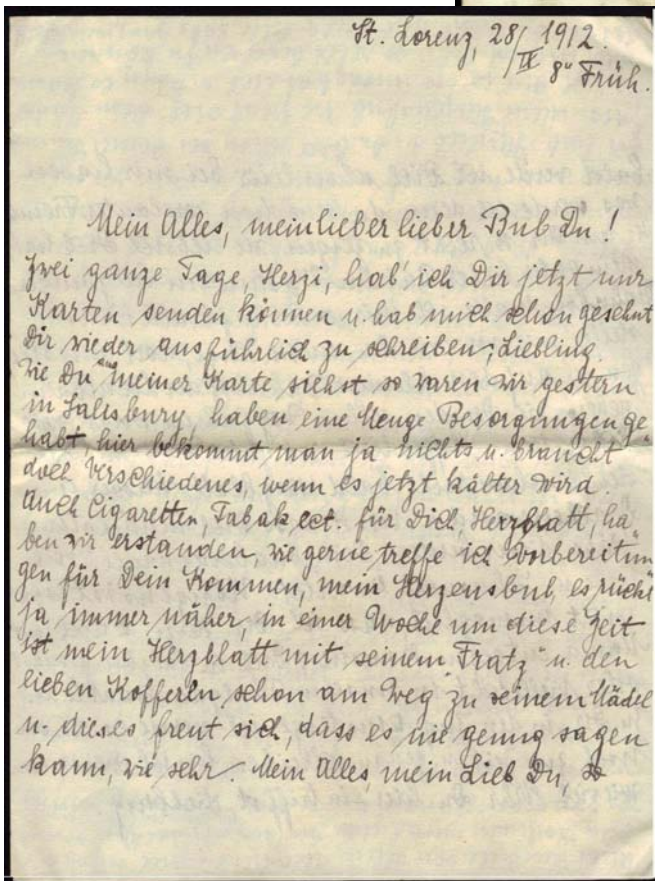 St. Lorenz, 28/IX 1912.
8h Früh.
Mein Alles, mein lieber lieber Bub Du!
Zwei ganze Tage, Herzi, hab' ich Dir jetzt nur
Karten senden können u. hab mich schon gesehnt
Dir wieder ausführlich zu schreiben, Liebling.
Wie Du aus meiner Karte siehst so waren wir gestern
in Salisbury, haben eine Menge Besorgungen ge-
habt, hier bekommt man ja nichts u. braucht
doch Verschiedenes, wenn es jetzt kälter wird.
Auch Cigaretten, Tabak ect. für Dich, Herzblatt, ha-
ben wir erstanden, wie gerne treffe ich Vorbereitun-
gen für Dein Kommen, mein Herzensbub, es rückt
ja immer näher, in einer Woche um diese Zeit
ist mein Herzblatt mit seinem "Fratz" u. den
lieben Kofferln schon am Weg zu seinem Mädel
u. dieses freut sich, dass es nie genug sagen
kann, wie sehr. Mein Alles, mein Lieb Du,